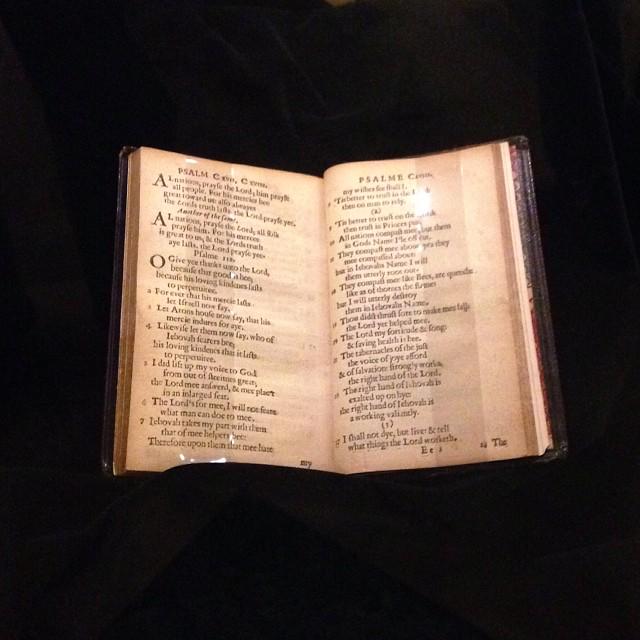 PSALM CXVII, CXVIII.
ALL nations, prayse the Lord; him prayse
all people. For his mercies bee
great toward us: also alwayes
the Lords truth lasts: the Lord prayse yee.
Another of the same.
ALL nations, prayse the Lord; all folk
prayse him. For his mercie
is great to us; & the Lords truth
aye lasts, the Lord prayse yee.
Psalme 118.
O Give yee thanks unto the Lord,
because that good is hee:
because his loving kindenes lasts
to perpetuitee.
2 For ever that his mercie lasts
let Israell now say.
3 Let Arons house now say, that his
mercie indures for aye.
4 Likewise let them now say, who of
Iehovah fearers bee;
his loving kindenes that it lasts
to perpetuitee.
5 I did lift up my voice to God
from out of streitnes great;
the Lord mee answerd, & mee plac't
in an inlarged seat.
6 The Lord's for mee, I will not feare
what man can doe to mee.
7 Iehovah takes my part with them
that of mee helpers bee:
Therefore upon them that mee hate
my
PSALME CXVIII.
my wishes see shall I.
8 'Tis better to trust in the Lord
then on man to rely.
(2)
9 'Tis better to trust on the Lord
then trust in Princes put
10 All nations compast mee, but them
in Gods Name I'le off cut.
11 They compast mee about, yea they
mee compassed about:
but in Iehovahs Name I will
them utterly root out.
12 They compast mee like Bees, are quencht
like as of thornes the flame:
but I will utterly destroy
them in Iehovahs Name.
13 Thou didst thrust sore to make mee fall:
the Lord yet helped mee.
14 The Lord my fortitude & song:
& saving health is hee.
15 The tabernacles of the just
the voice of joye afford
& of salvation: strongly works
the right hand of the Lord.
16 The right hand of Iehovah is
exalted up on hye:
the right hand of Iehovah is
a working valiantly.
(3)
17 I shall not dye, but live: & tell
what things the Lord worketh.
Ee 2
18 The